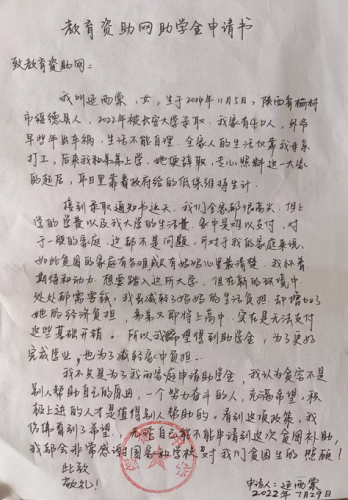 教育资助网助学金申请书
致教育资助网：
我叫延雨棠，女，生于2004年11月5日，陕西省榆林
市绥德县人，2022年被长安大学录取。我家有4口人，外爷
早些年出车祸，生活不能自理。全家人的生活仅靠我母亲
打工，后来我和弟弟上学，她便辞职，专心照料这一大家
的起居，平日里靠着政府给的低保维持生计。
接到录取通知书这天，我们全家都很高兴，但上
学的学费以及我大学的生活费，家中是难以支付，对
于一般的家庭，这都不是问题，而对于我的家庭来说，
如此贫困的家庭有苦难或只有妈妈心里最清楚，我怀着
期待和动力，想要踏入这所大学，但在新的环境中
处处都需要钱，我虽减轻了妈妈的生活负担，却增加了
她的经济负担，弟弟又即将上高中，实在是无法支付
这些基础开销。所以我希望得到助学金，为了更好
完成学业，也为了减轻家中负担。
我不只是为了我的家庭申请助学金，我认为贫穷不是
别人帮助自己的原因，一个努力奋斗的人，充满希望，积
极上进的人才是值得别人帮助的。看到这项政策，我
仿佛看到了希望，无论自己能不能申请到这次贫困补助，
我都会非常感谢国家和学校对我们贫困生的照顾！
此致
敬礼！
申请人：延雨棠
2022年7月29日